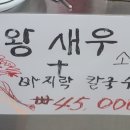 왕 새우 소
+
바지락 칼국수
45 000